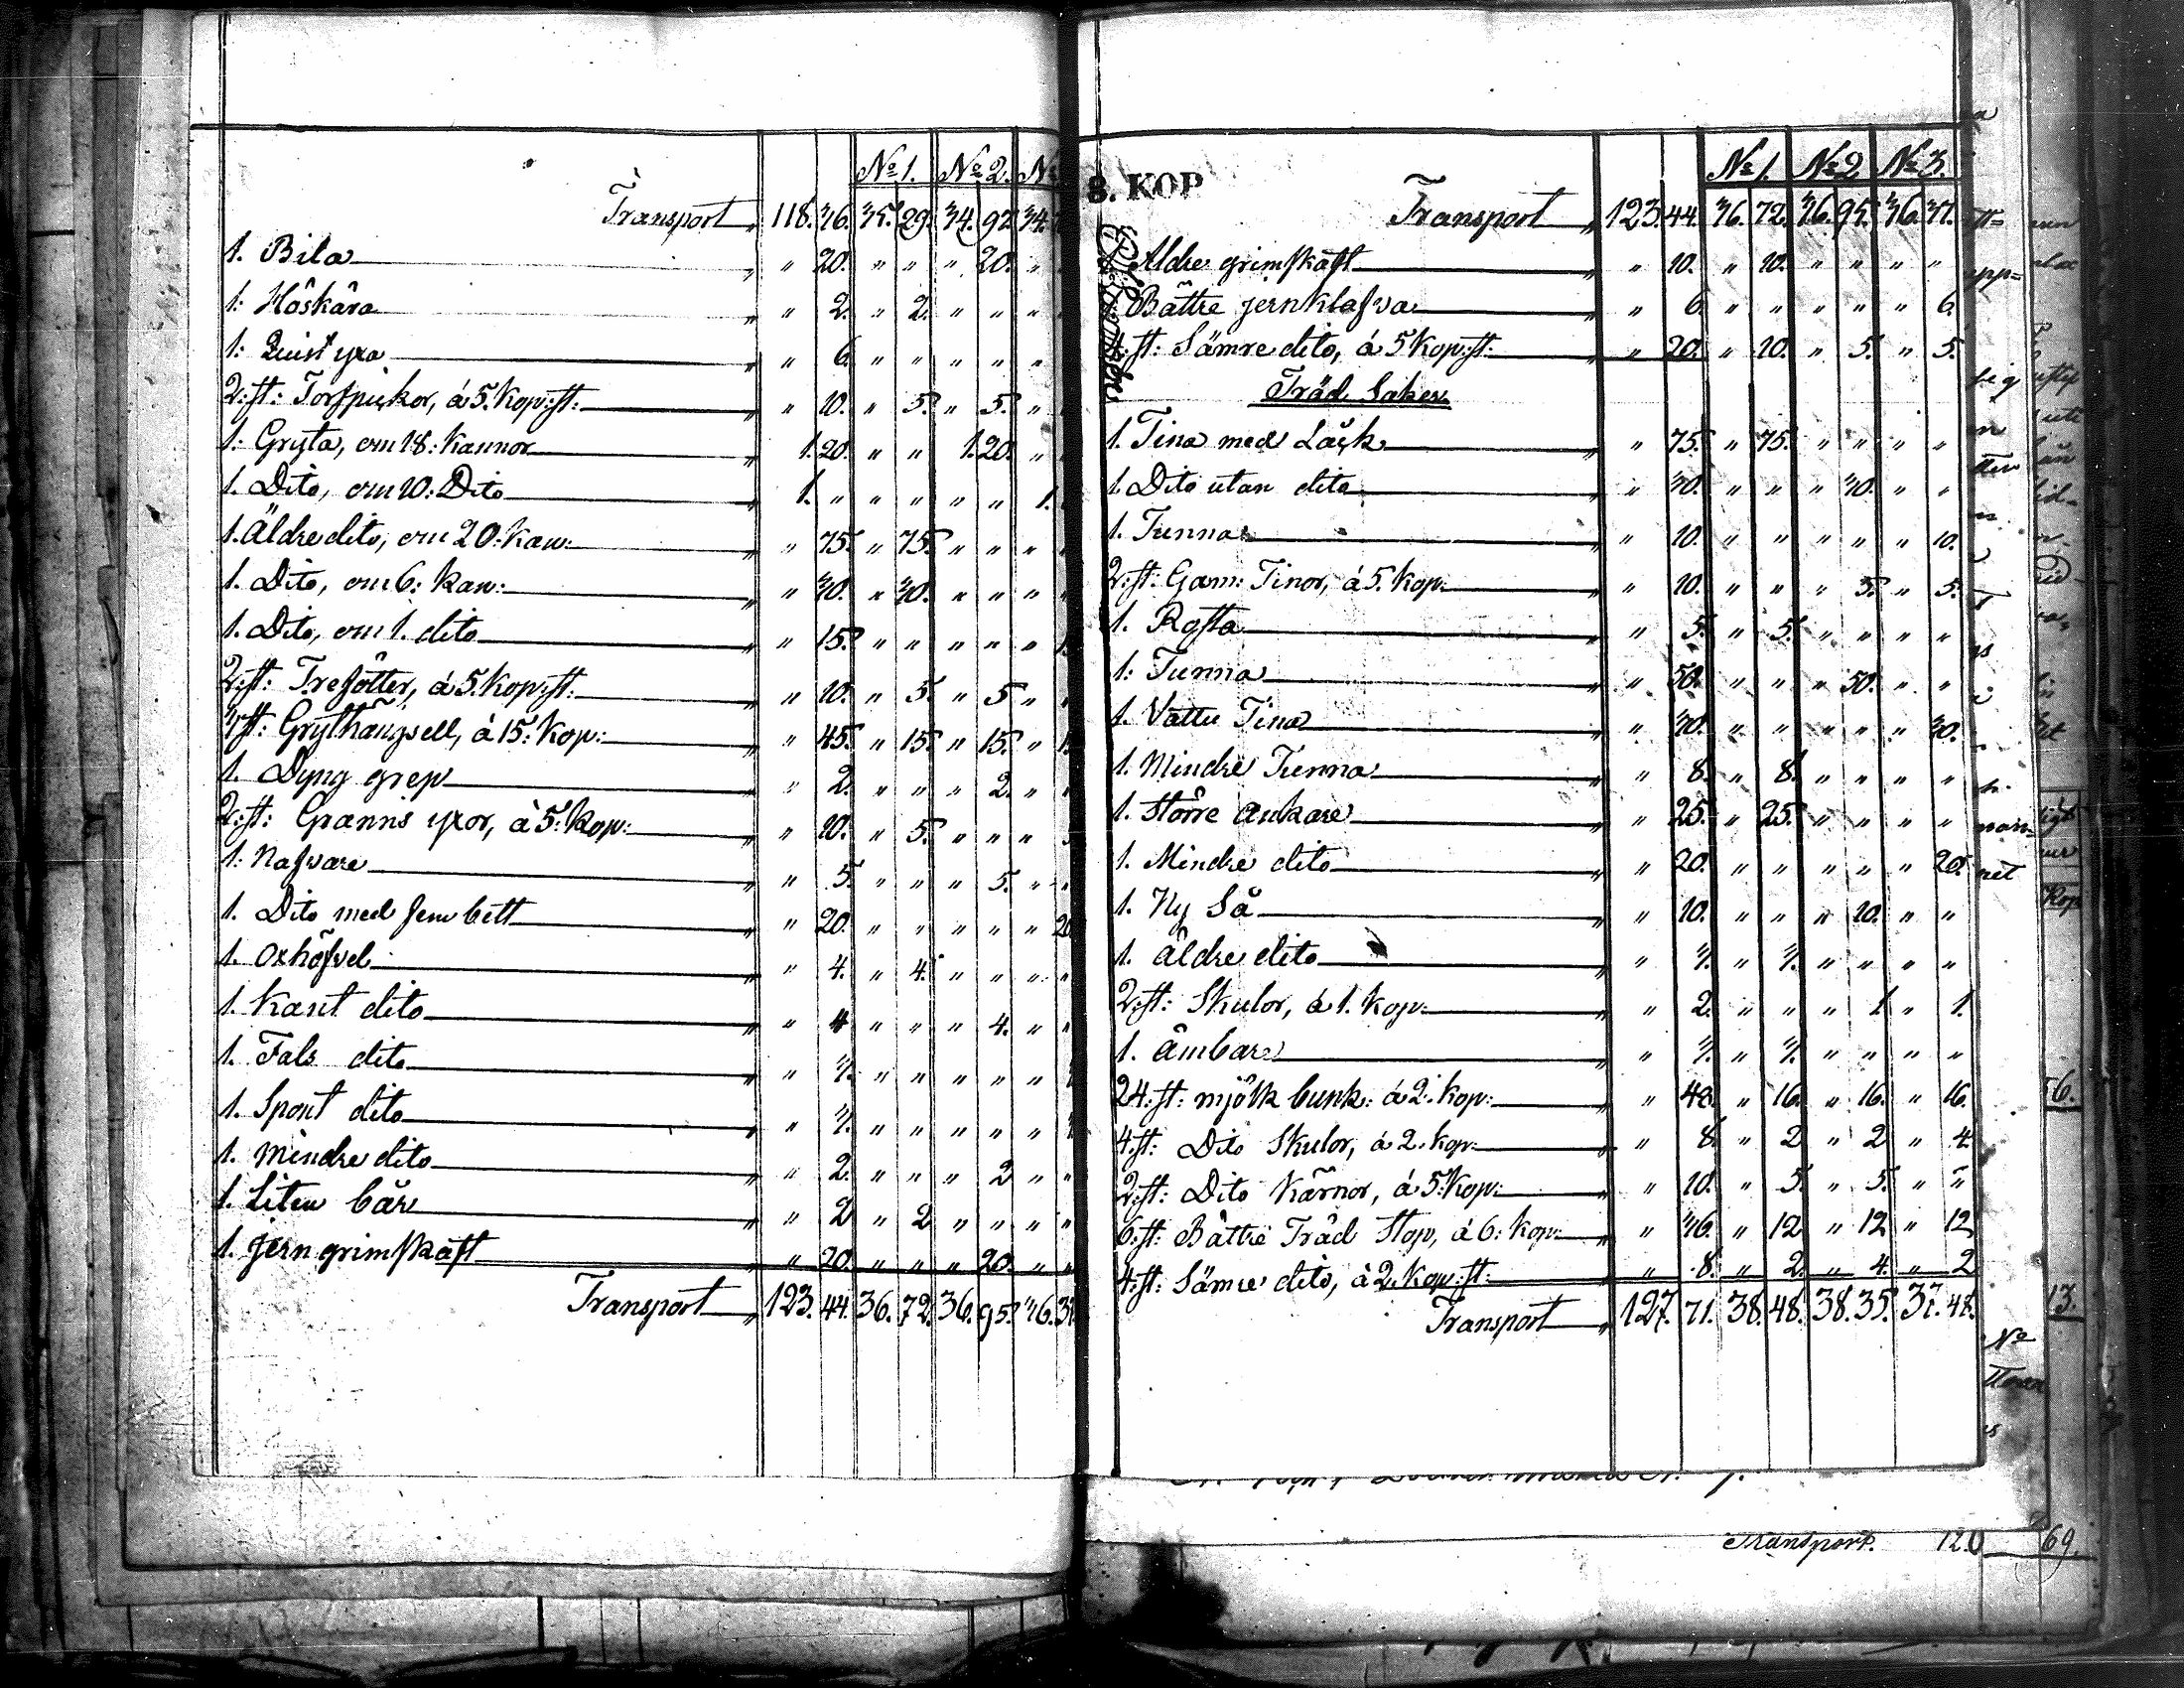 No 1. No 2. No
Transport 118. 36. 35. 29. 34. 92. 34.
1. Bila " 20. " " " 20. "
1: Höskära " 2. " 2. " " "
1: Quist yxa " 6. " " " " "
2: st: Torfpickor, á 5. Kop: st: " 10. " 5. " 5. "
1: Gryta, om 18: Kannor 1. 20. " " 1. 20. "
1. Dito, om 10: Dito 1. " " " " " 1.
1. Äldre dito, om 20: Kan: " 75. " 75. " " "
1. Dito, om 6: Kan: " 30. " 30. " " "
1. Dito, om 1. dito " 15. " " " " "
2: st: Trefötter, á 5. Kop: st: " 10. " 5. " 5 "
3 st: Grythängsell, á 15: Kop: " 45. " 15. " 15. "
1. Dyng grep " 2. " " " 2. "
2: st: Granris yxor, á 5: Kop: " 10. " 5. " " "
1: Nafvare " 5. " " " 5. "
1. Dito med fem bett " 20. " " " " " 20
1. Oxhöfvel " 4. " 4. " " "
1. Kant dito " 4 " " " 4. "
1. Fals dito " 3. " " " " "
1. Spont dito " 3. " " " " "
1. Mindre dito " 2. " " " 2 "
1. Liten bär " 2 " 2 " " "
1. Jern grimskaft " 20. " " " 20. "
Transport 123. 44. 36. 72. 36. 95. 36. 37
8. KOP
No 1. No 2. No 3.
Transport 123. 44. 36. 72. 36. 95. 36. 37.
Äldre grimskaft " 10. " 10. " " " "
Bättre jernklafva " 6. " " " " " 6.
4: st: Sämre dito, á 5 Kop: st: " 20. " 10. " 5. " 5.
Träd Saker
1. Tina med Låck " 75. " 75. " " " "
1. Dito utan dito " 30. " " " 30. " "
1. Tunna " 10. " " " " " 10.
2: st: Gam: Tinor, á 5. Kop: " 10. " " " 5. " 5.
1. Rosta " 5. " 5. " " " "
1: Tunna " 50. " " " 50. " "
1. Vattu Tina " 30. " " " " " 30.
1. Mindre Tunna " 8. " 8. " " " "
1. Större ankare " 25. " 25. " " " "
1. Mindre dito " 20. " " " " " 20.
1. Ny Så " 10. " " " 10. " "
1. äldre dito " 3. " 3. " " " "
2: st: Skulor, á 1. Kop: " 2. " " " 1 " 1.
1. ämbare " 3. " 3. " " " "
24: st: mjölk bunk: á 2: Kop: " 48. " 16. " 16. " 16.
4: st: Dito Skulor, á 2. Kop: " 8. " 2 " 2 " 4.
2: st: Dito Kärnor, á 5: Kop: " 10. " 5. " 5. " "
6: st: Bättre Träd Stop, á 6: Kop: " 36. " 12 " 12 " 12
4: st: Sämre dito, á 2. Kop: st: " 8. " 2. " 4. " 2
Transport 127. 71. 38. 48. 38. 35. 37. 48.
Transport. 120 69.